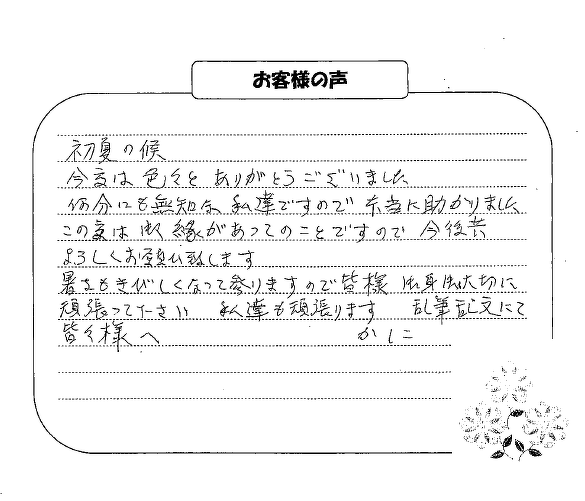 お客様の声
初夏の候
今度は色々と ありがとうございました
何分にも無知な 私達ですので 本当に助かりました
この度は 御縁があってのことですので 今後共
よろしくお願い致します
暑さもきびしくなって参りますので皆様 御身御大切に
頑張って下さい 私達も頑張ります 乱筆乱文にて
皆々様へ かしこ